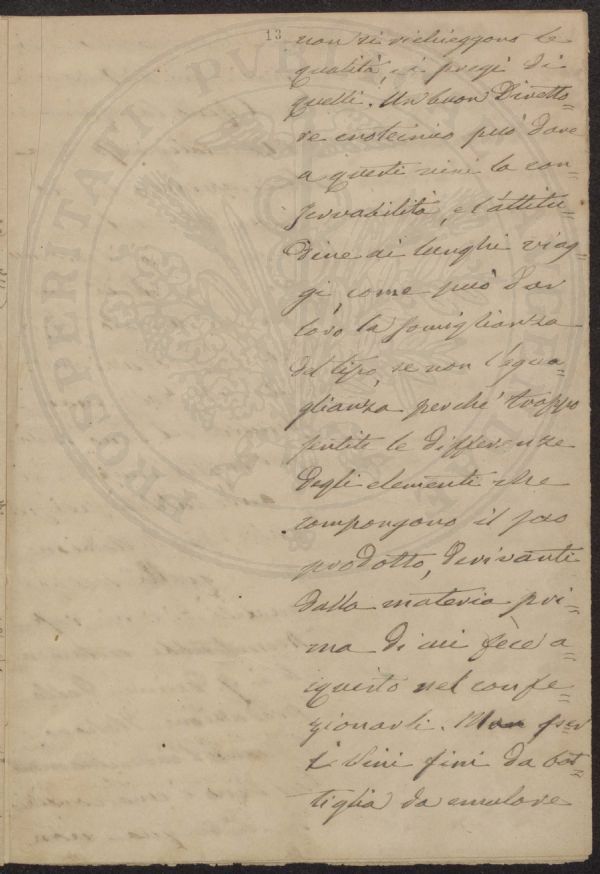 13
non si richieggono le
qualità, i pregi di
quelli. Un buon Diretto=
re enotecnico può dare
a questi vini la con=
servabilità, e l'attitu=
dine ai lunghi viag=
gi, come può dar
loro la somiglianza
del tipo, se non l'egua=
glianza perchè troppo
sentite le differenze
degli elementi che
compongono il suo
prodotto, derivanti
dalla materia pri=
ma di cui fece a=
cquisto nel confe=
zionarli. Man per
i Vini fini da bot=
tiglia da emulare
PROSPERITATI PUBLICAE